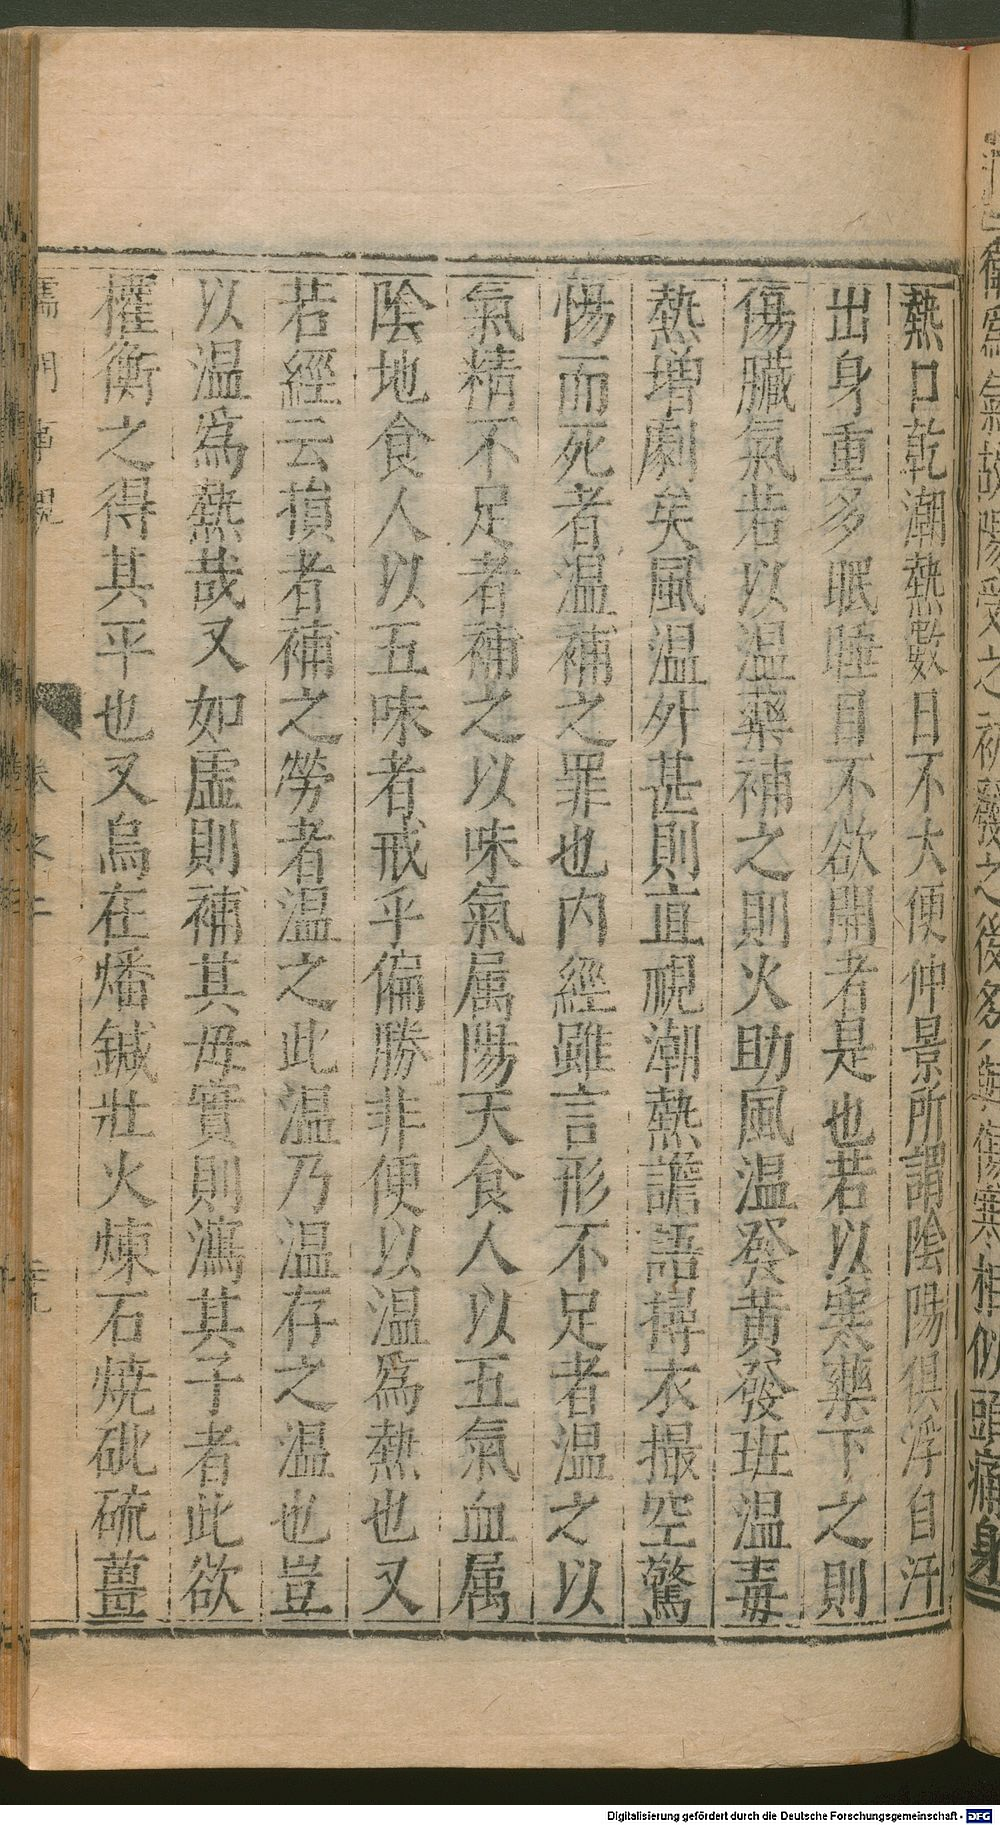 熱口乾潮熱數日不大便仲景所謂陰陽俱浮自汗
出身重多眠睡目不欲開者是也若以寒藥下之則
傷臟氣若以温藥補之則火助風温發黃發班温毒
熱增劇矣風温外甚則直視潮熱譫語撏衣撮空驚
惕而死者温補之罪也内經雖言形不足者温之以
氣精不足者補之以味氣属陽天食人以五氣血属
陰地食人以五味者戒乎偏勝非便以温爲熱也又
若經云損者補之勞者温之此温乃温存之温也豈
以温爲熱哉又如虛則補其母實則瀉其子者此欲
權衡之得其平也又烏在燔鍼壯火煉石燒砒硫薑
儒門事親 卷之二
衛爲氣故陽受之初發之後多與傷寒相似頭痛身
Digitalisierung gefördert durch die Deutsche Forschungsgemeinschaft - DFG